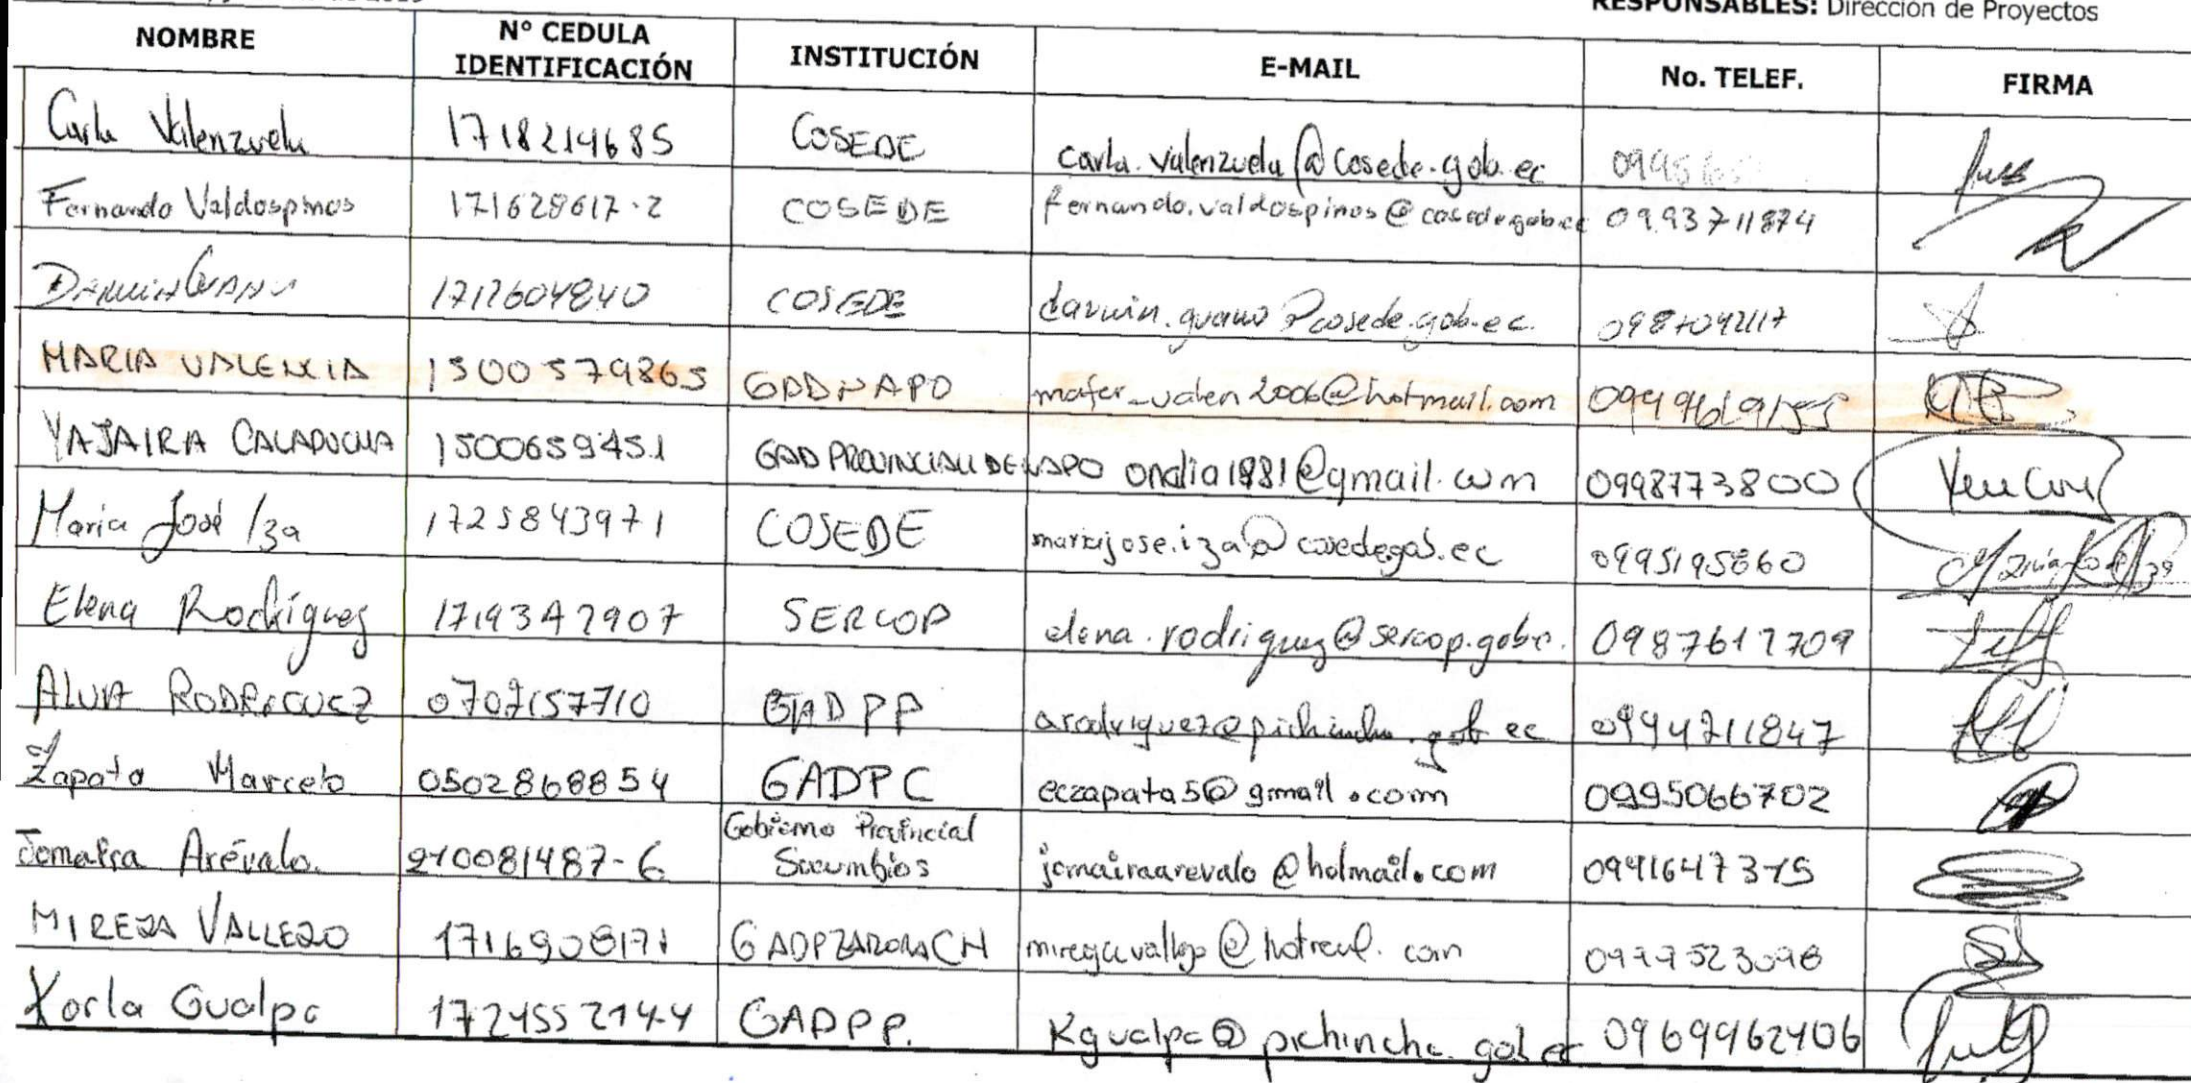 RESPONSABLES: Dirección de Proyectos
NOMBRE Nº CEDULA IDENTIFICACIÓN INSTITUCIÓN E-MAIL No. TELEF. FIRMA
Carla Valenzuela 1718214685 COSEDE carla.valenzuela@cosede.gob.ec
Fernando Valdospinos 171628617-2 COSEDE fernando.valdospinos@cosede.gob.ec 0993711874
1712604840 COSEDE darwin.guano@cosede.gob.ec
MARIA VALENCIA 1500579865 GADNAPO mafer_valen2006@hotmail.com
YAJAIRA CALAPUCHA 1500659451 GAD PROVINCIAL DE NAPO ondia1981@gmail.com 0998773800
Maria José Iza 1725843971 COSEDE mariajose.iza@cosede.gob.ec 0995195860
Elena Rodríguez 1719347907 SERCOP elena.rodriguez@sercop.gob. 0987617709
RODRIGUEZ 0707157710 GADPP arodriguez@pichincha.gob.ec 0994711847
Zapata Marcelo 0502868854 GADPC eczapata5@gmail.com 0995066702
Jomaira Arévalo. 210081487-6 Gobierno Provincial Sucumbíos jomairaarevalo@hotmail.com
MIREYA VALLEJO GADPZAMORACH
Karla Gualpa GADPP. kgualpa@pichincha.gob.ec 0969962406